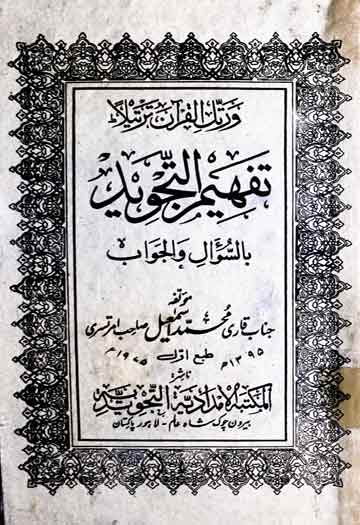 ورتل القرآن ترتیلاً
تفهیم التجوید
بالسؤال والجواب
مؤلفہ
جناب قاری محمد اسمٰعیل صاحب امرتسری
طبع اول
۱۳۹۵ھ ۱۹۷۵م
ناشرہ
المکتبة الامدادیة التجویدیة
بیرون چوک شاہ عالم - لاہور پاکستان